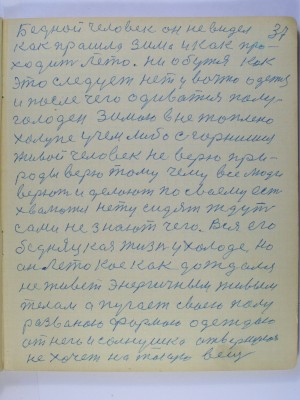 37
Бедной человек он не видел
как прашла зима и как про-
ходит Лето. ни обутя как
это следует нет у вожно одетя
и после чего одиватия полу-
голоден Зимою в не топлено
халупе учем либо сгорнишия
живой человек не верю при-
роды верю тому чему все люди
верют и делают по своему ест-
хвамотя нету сидят ждуть
сами не знают чего. Вся его
бедняцкая жизн у холоде но
он Лето кое как дождался
не живет энергичным живым
телам а пугает своею полу
разваною формою одеждою
от него и солнушка отвернулося
не хочет на такую вещ